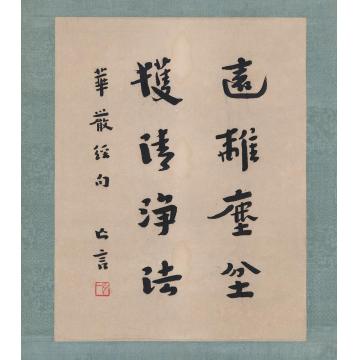 遠離塵坌
獲清淨法
華嚴經句 亡言